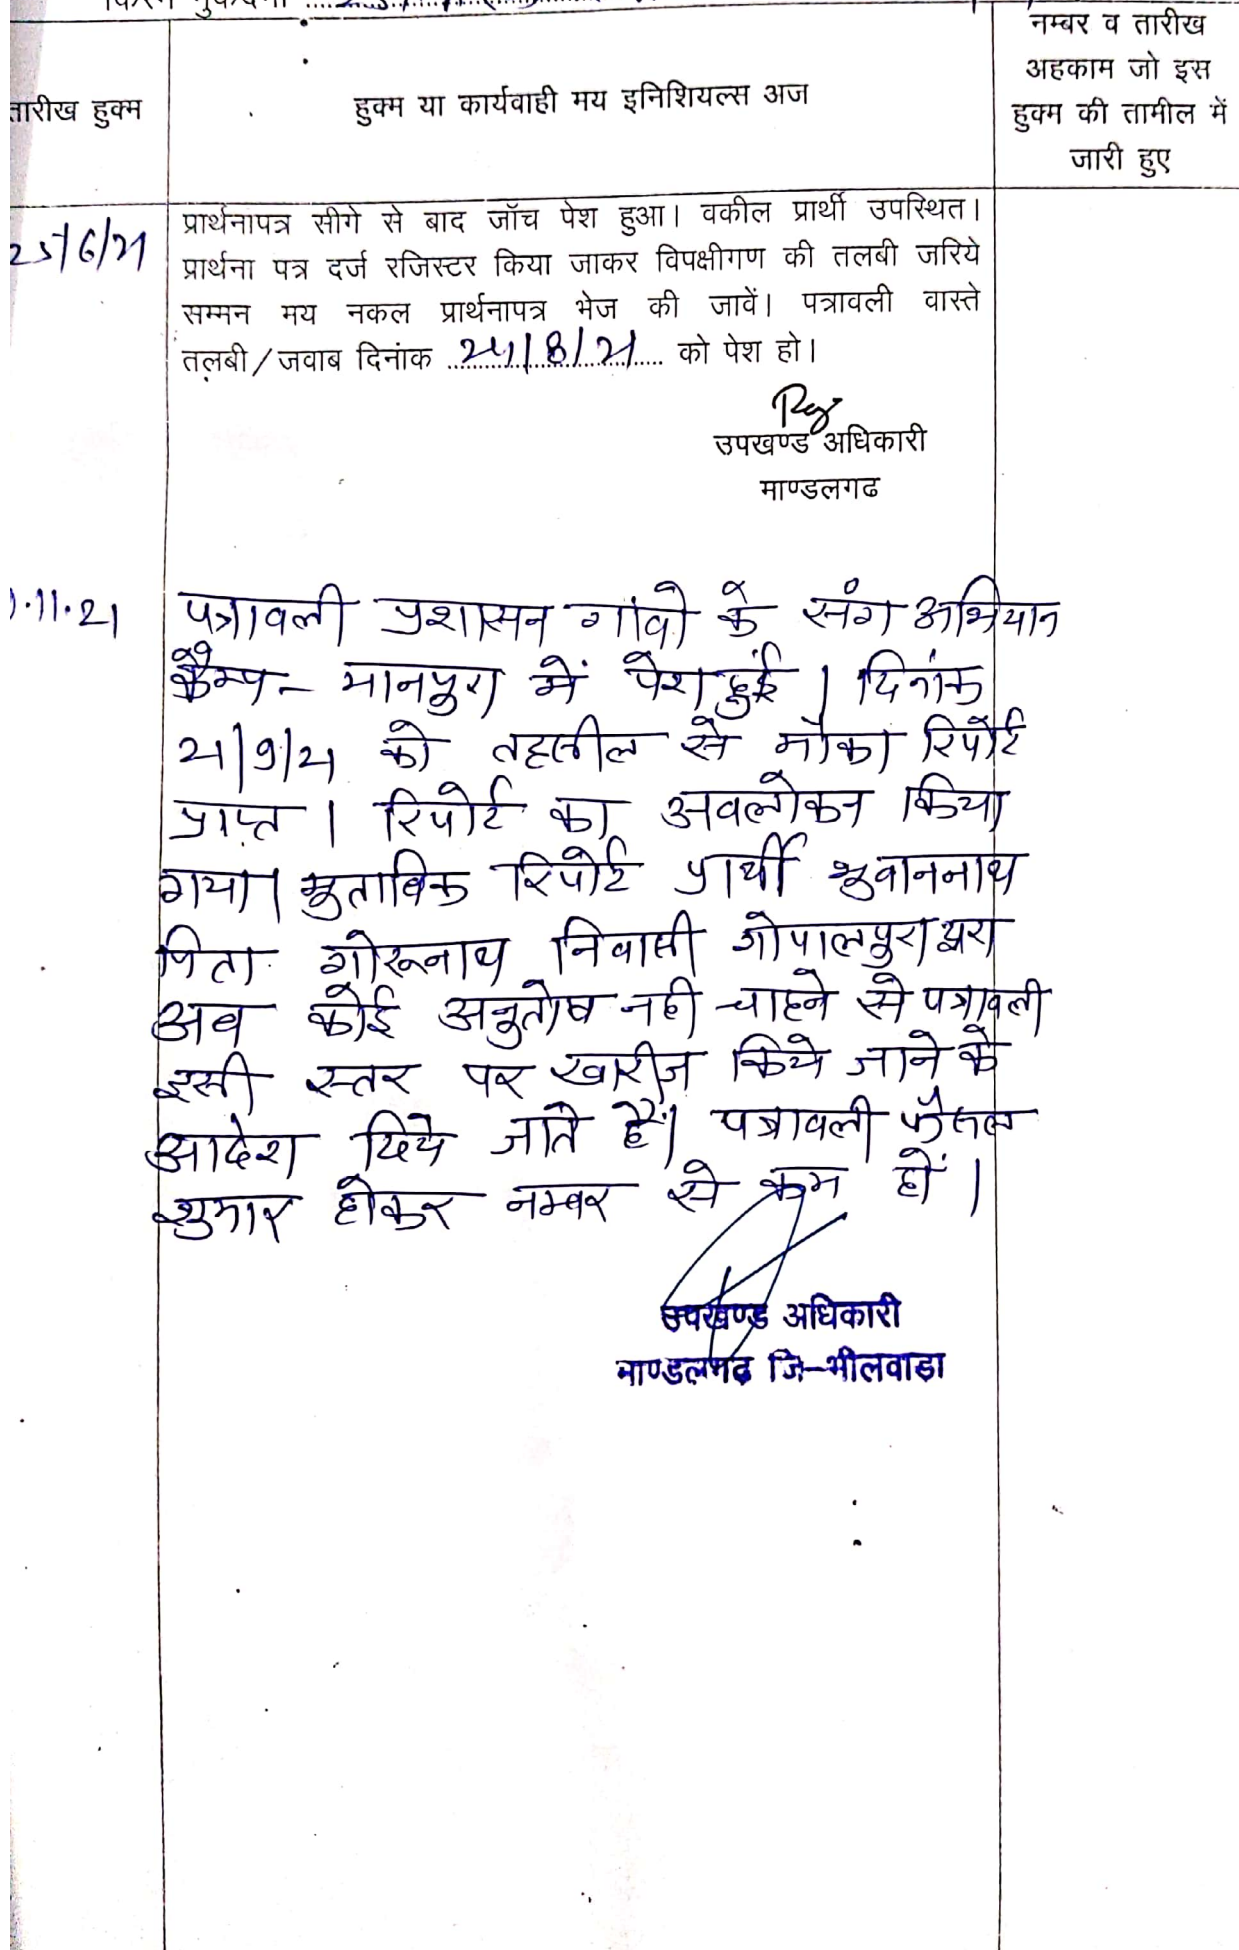 नम्बर व तारीख
अहकाम जो इस
हुक्म की तामील में
जारी हुए
तारीख हुक्म
हुक्म या कार्यवाही मय इनिशियल्स अज
25/6/21
प्रार्थनापत्र सीगे से बाद जॉच पेश हुआ। वकील प्रार्थी उपस्थित।
प्रार्थना पत्र दर्ज रजिस्टर किया जाकर विपक्षीगण की तलबी जरिये
सम्मन मय नकल प्रार्थनापत्र भेज की जावें। पत्रावली वास्ते
तलबी/जवाब दिनांक /8/21 को पेश हो।
उपखण्ड अधिकारी
माण्डलगढ
.11.21
पत्रावली प्रशासन गांवो के संग अभियान
कैम्प- मानपुरा में पेश हुई। दिनांक
21/9/21 को तहसील से मौका रिपोर्ट
प्राप्त। रिपोर्ट का अवलोकन किया
गया। मुताबिक रिपोर्ट प्रार्थी भुवाननाथ
पिता निवासी गोपालपुरा द्वारा
अब कोई अनुतोष नही चाहने से पत्रावली
इसी स्तर पर खारीज किये जाने के
आदेश दिये जाते हैं। पत्रावली फैसल
शुमार होकर नम्बर से कम हों।
उपखण्ड अधिकारी
माण्डलगढ़ जि-भीलवाडा